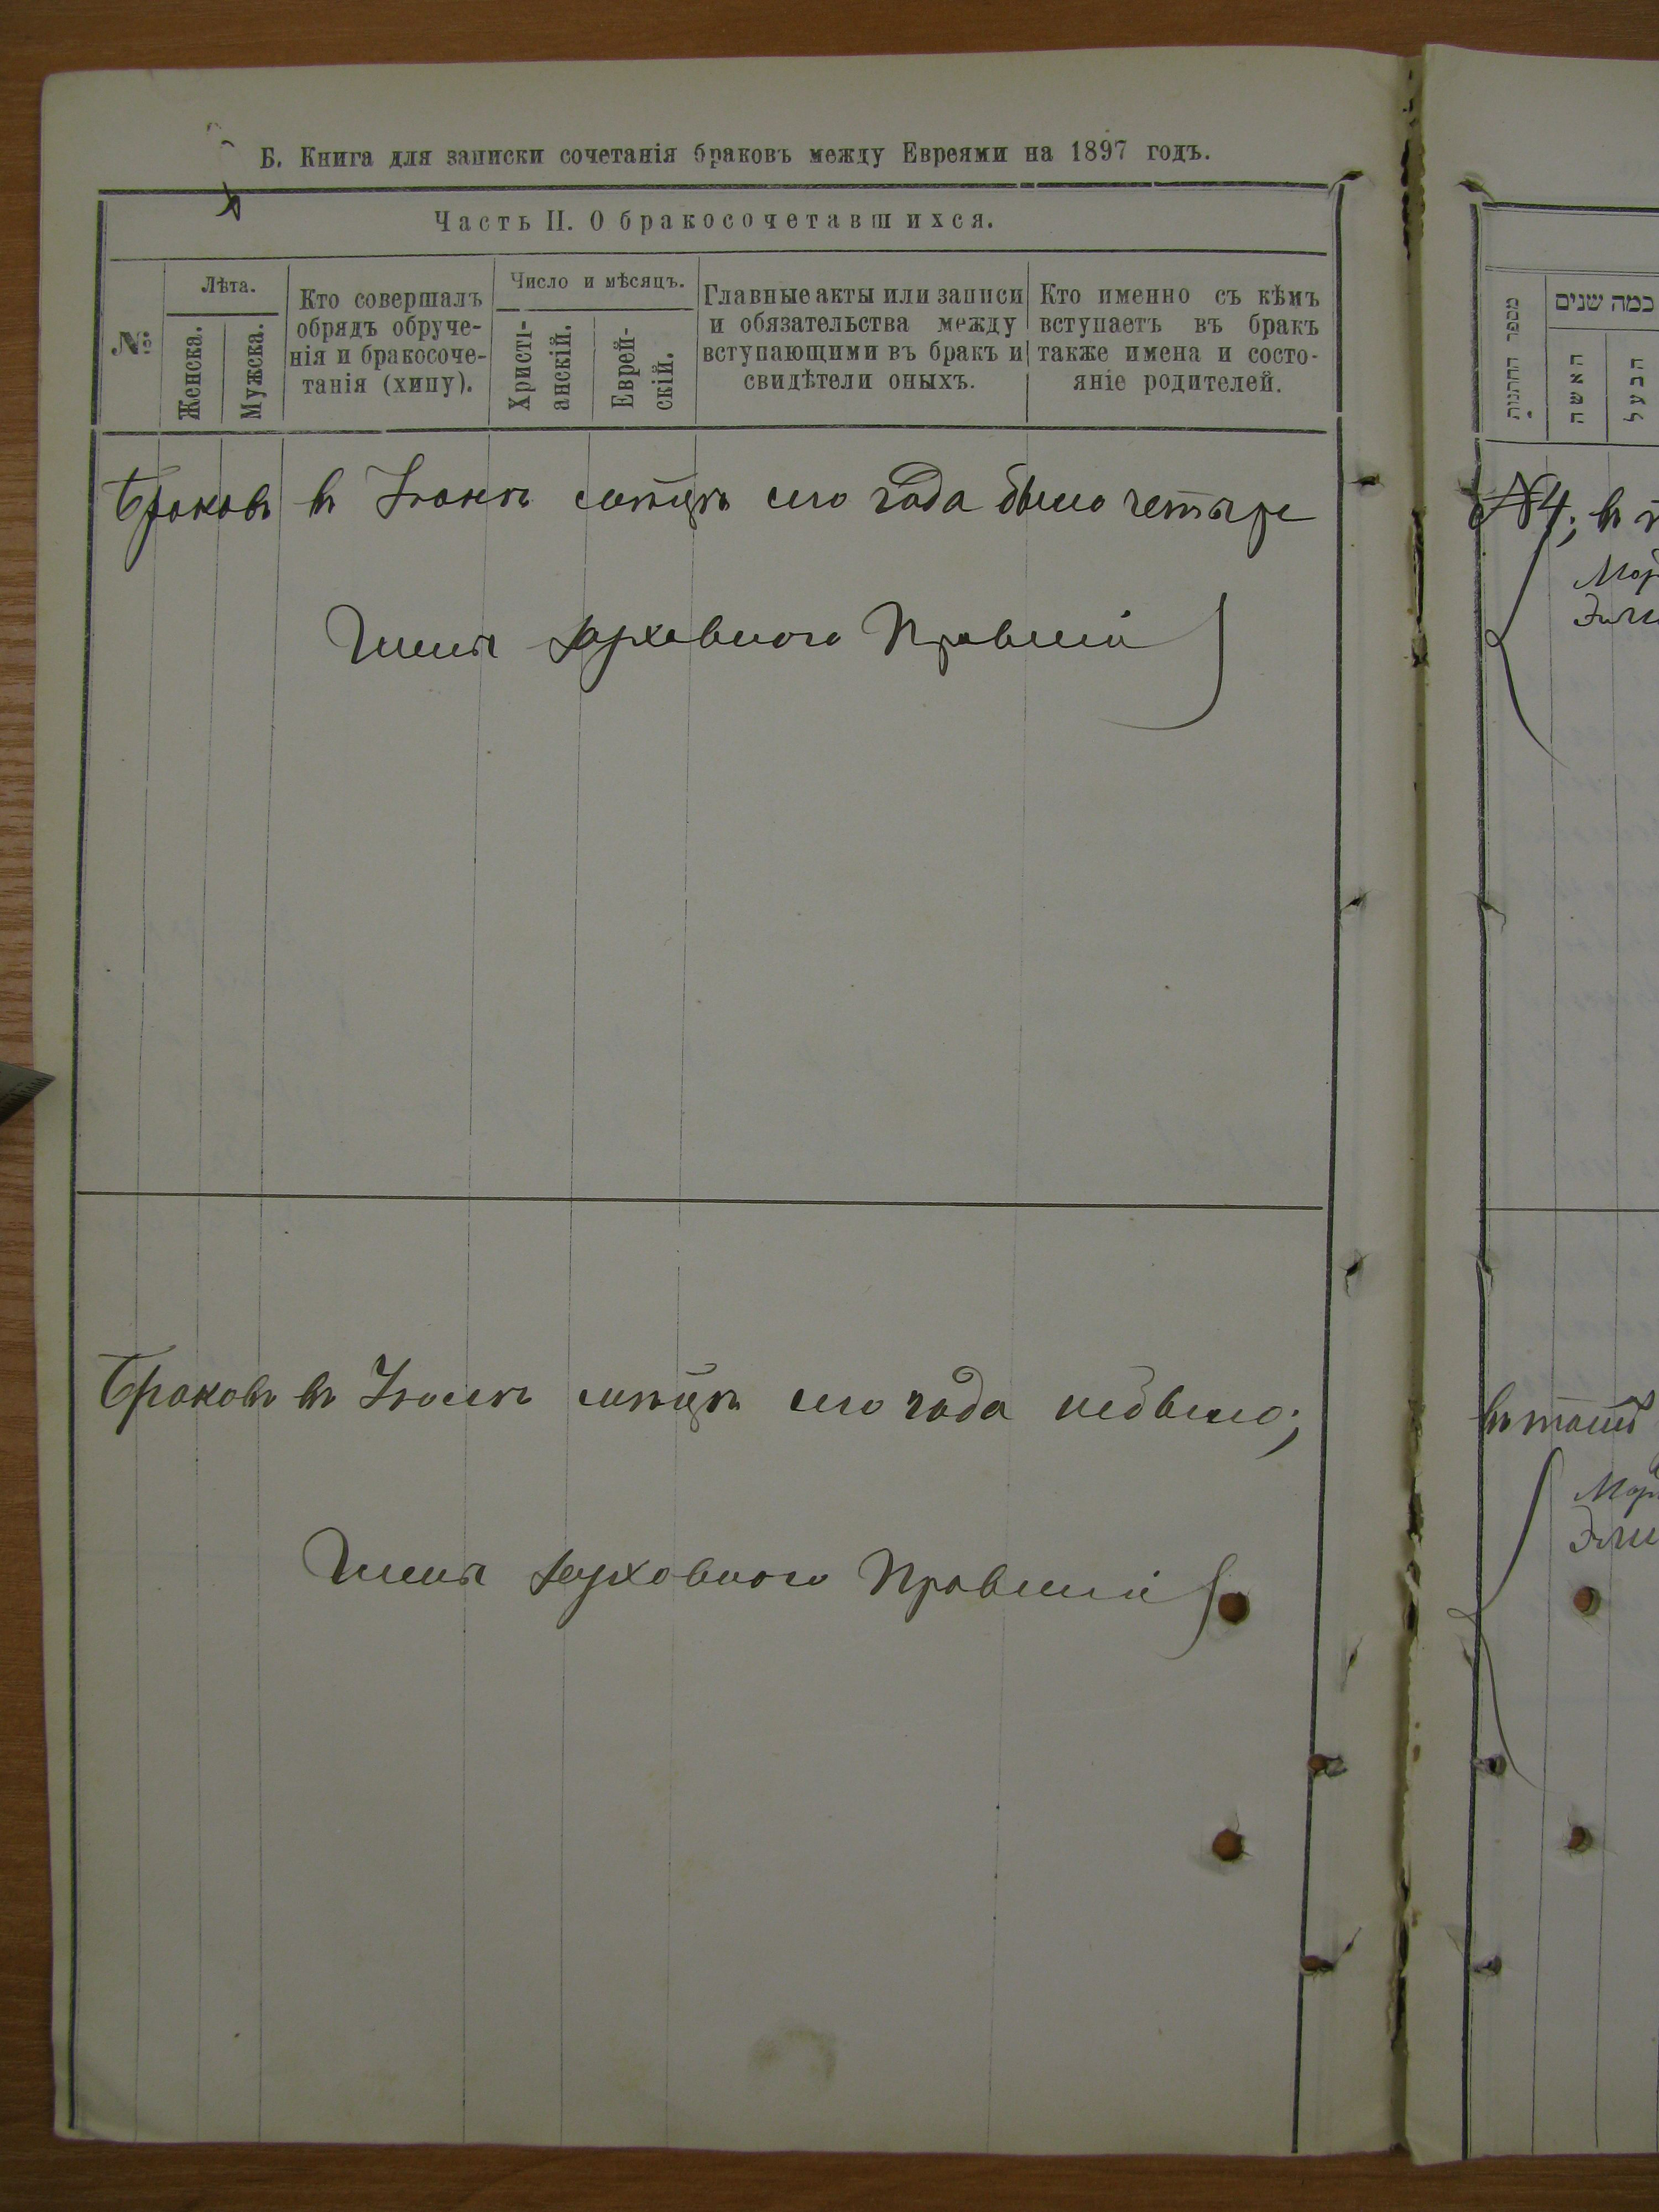 Б. Книга для записки сочетанія браковъ между Евреями на 1897 годъ.
Часть II. О бракосочетавшихся.
№
Лѣта.
Женска.
Мужска.
Кто совершалъ
обрядъ обруче-
нія и бракосоче-
танія (хипу).
Число и мѣсяцъ.
Христі-
анскій.
Еврей-
скій.
Главные акты или записи
и обязательства между
вступающими въ бракъ и
свидѣтели оныхъ.
Кто именно съ кѣмъ
вступаетъ въ бракъ
также имена и состо-
яніе родителей.
Браковъ въ Іюнѣ мѣсяцѣ сего года было четыре
Члены духовного Правленія
Браковъ въ Іюлѣ мѣсяцѣ сего года небыло;
Члены духовного Правленія
כמה שנים
מספר החתנות
האשה
הבעל
№4; въ
Мор
Эли
въ томъ
Мор
Эли